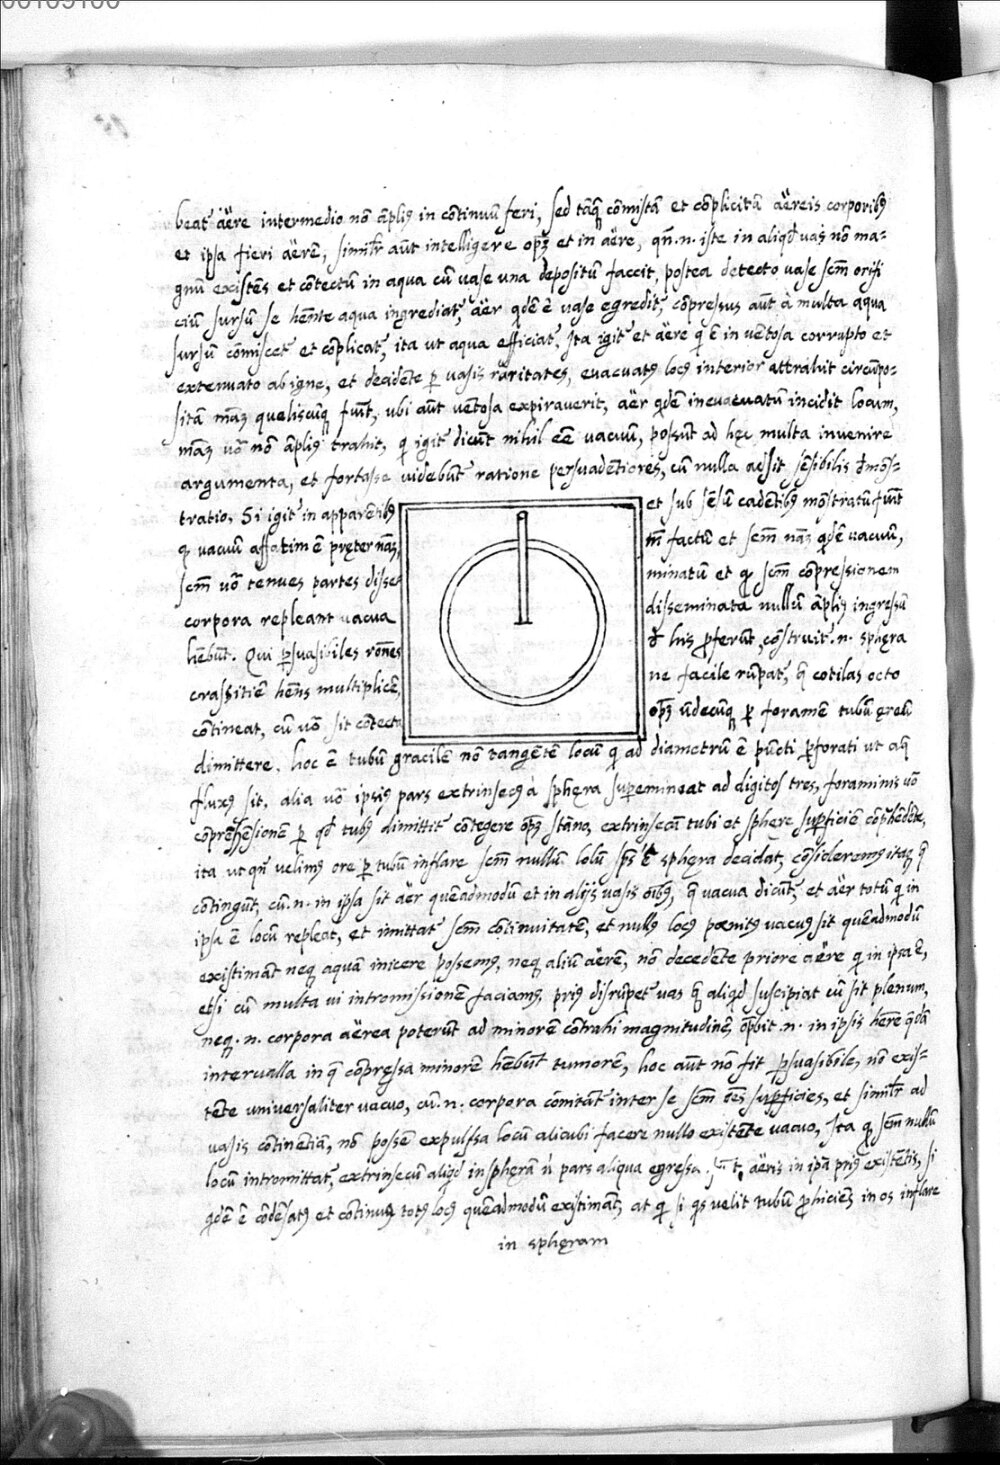 beat̃ aëre intermedio nō āplius in cōtinuū feri, sed tāq̃ cōmistā et cōplicitā aëreis corporibus
et ipsa fieri aërē, simil̃r aūt intelligere op₃ et in aëre, qñ .n. iste in aliqd̃ vas nō ma-
gnū existēs et cōtectū in aqua cū vase una depositū faccit, postea detecto vase scm̄ orifi
ciū sursū se hēnte aqua ingrediat̃, aër qdē è vase egredit̃, cōpressus aūt à multa aqua
sursū cōmiscet̃ et cōplicat̃, ita ut aqua efficiat̃, Ita igit̃ et aëre q̃ ē in vētosa corrupto et
extenuato ab igne, et decidēte p̱ vasis raritates, evacuatus locus interior attrahit circūpo-
sitā mā₃ queliscūq̃ fu̅t, ubi aūt vētosa expiraverit, aër qdē in evacuatū incidit locum,
mā₃ vō nō āplius trahit, q̃ igit̃ dicūt nihil eē vacuū, possūt ad hęc multa invenire
argumenta, et fortasse videbūt̃ ratione persuadētiores, cū nulla adsit sēsibilis d̃mōs-
tratio, Si igit̃ in apparētibus et sub sēsū cadētibus mōstratū fu̅t
q̨ vacuū affatim ē pręter nā₃, m̃ factū et scm̄ nā₃ qdē vacuū,
scm̄ vō tenues partes disse minatū et q̨ scm̄ cōpressionem
corpora repleant vacua disseminata nullū āplius ingressū
hēbūt. Qui p̱suasibiles rōnes d̃ his p̱ferūt, cōstruit̃ .n. sphęra
crassitiē hēns multiplicē, ne facile rūpat̃, q̃ cotilas octo
cōtineat, cū vō sit cōtecta op₃ ūdecūq̃ p̱ foramē tubū ęreū
dimittere, hoc ē tubū gracilē nō tangētē locū q̃ ad diametrū ē pūcti p̱forati ut aq̃
fluxus sit, alia vō ipsius pars extrinsecus à sphęra sup̱emineat ad digitos tres, foraminis vō
cōprehēsionē p̱ qd̃ tubus dimittit̃ cōtegere op₃ stāno, extrinsecā tubi et sphęre sup̱ficiē cōp̱hēdēte,
ita ut qñ velimus ore p̱ tubū inflare scm̄ nullū locū sp̄s è sphęra decidat, cōsideremus ita₃ q̃
cōtingūt, cū .n. in ipsa sit aër quēadmodū et in alijs vasis oībus, q̃ vacua dicūt̃, et aër totū q̃ in
ipsa ē locū repleat, et īmittat̃ scm̄ cōtinuitatē, et nullus locus pœnitus vacuus sit quēadmodū
existimāt neq̃ aquam inicere possemus, neq̃ aliū aërē, nō decedēte priore aëre q̃ in ipsa ē,
etsi cū multa vi intromissionē faciamus, prius disrūpet̃ vas q̃ aliqd̃ suscipiat cū sit plenum,
neq̃ .n. corpora aërea poterūt ad minorē cōtrahi magnitudinē, op̱bit .n. in ipsis hēre q̃dā
intervalla in q̃ cōpressa minorē hēbūt tumorē, hoc aūt nō fit p̱suasibile, nō exis-
tēte universaliter vacuo, cū .n. corpora cōmitāt̃ inter se scm̄ oēs sup̱ficies, et simil̃r ad
vasis cōtinētiā, nō possē expulsa locū alicubi facere nullo existēte vacuo, Ita q̨ scm̄ nullū
locū intromittat̃, extrinsecū aliqd̃ in sphęrā ñ pars aliqua egressa aëris in ipā prius existētis, si
qdē ē cōdēsatus et cōtinuus totus locus quēadmodū existimāt, at q̨ si qs velit tubū p̱hiciēs in os inflare
in sphęram